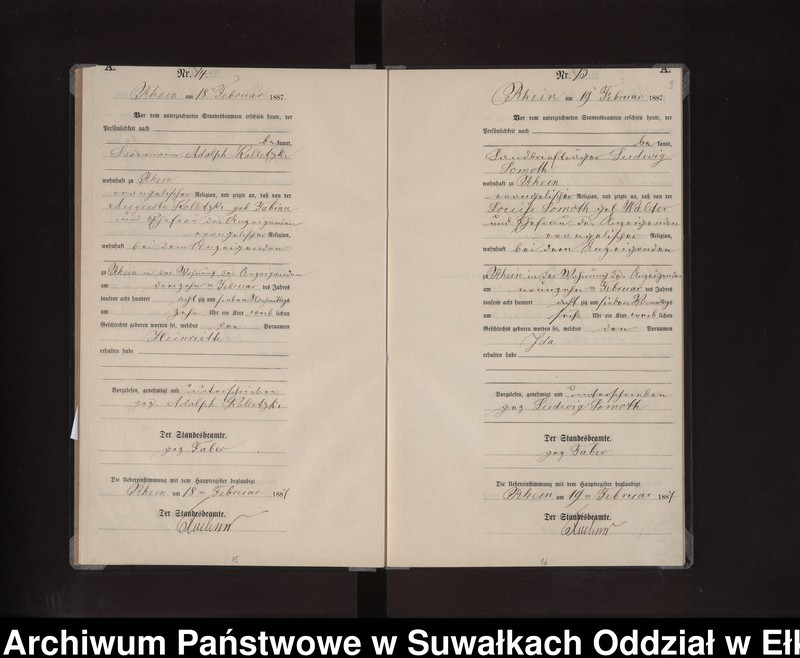 A.
Nr. 14.
Rhein am 18 Februar 1887.
Vor dem unterzeichneten Standesbeamten erschien heute, der
Persönlichkeit nach
be kannt,
Adolph Kolletzki
wohnhaft zu Rhein
evangelischer Religion, und zeigte an, daß von der
Auguste Kolletzki geb Fabian
und Ehefrau des Anzeigenden
evangelischer Religion,
wohnhaft bei dem Anzeigenden
zu Rhein in der Wohnung des Anzeigenden
am Februar des Jahres
tausend acht hundert acht zig und sieben Nachmittags
um zehn Uhr ein Kind weib lichen
Geschlechts geboren worden sei, welches den Vornamen
erhalten habe
Vorgelesen, genehmigt und unterschrieben
gez. Adolph Kolletzki
Der Standesbeamte.
gez Faber
Die Uebereinstimmung mit dem Hauptregister beglaubigt
Rhein am 18 Februar 1887
Der Standesbeamte.
15
A.
Nr. 15
Rhein am 19 Februar 1887.
Vor dem unterzeichneten Standesbeamten erschien heute, der
Persönlichkeit nach
be kannt,
Landbriefträger Ludwig
Somoth
wohnhaft zu Rhein
evangelischer Religion, und zeigte an, daß von der
Louise Somoth geb. Walter
und Ehefrau des Anzeigenden
evangelischer Religion,
wohnhaft bei dem Anzeigenden
zu Rhein in der Wohnung des Anzeigenden
am neunzehn Februar des Jahres
tausend acht hundert acht zig und sieben Vormittags
um Uhr ein Kind weib lichen
Geschlechts geboren worden sei, welches den Vornamen
Ida
erhalten habe
Vorgelesen, genehmigt und unterschrieben
gez Ludwig Somoth
Der Standesbeamte.
gez Faber
Die Uebereinstimmung mit dem Hauptregister beglaubigt
Rhein am 19 Februar 1887
Der Standesbeamte.
16
Archiwum Państwowe w Suwałkach Oddział w Ełk